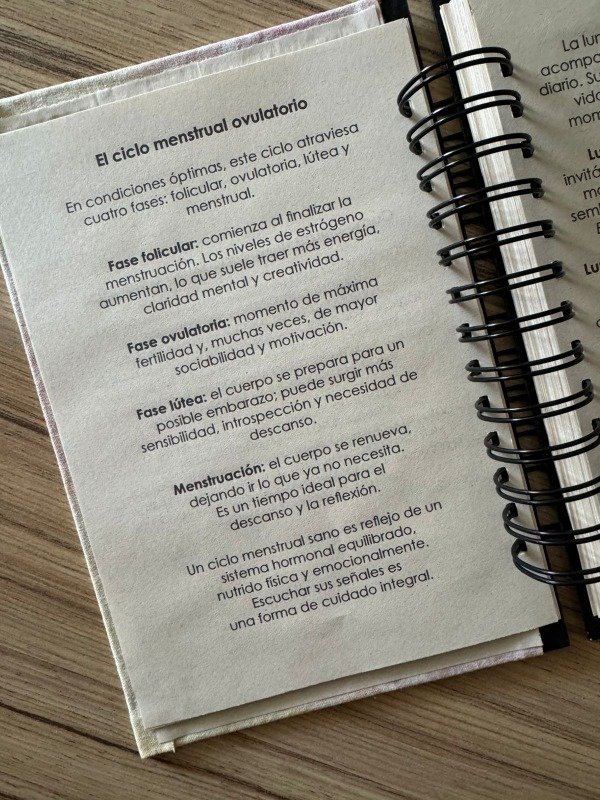 El ciclo menstrual ovulatorio
En condiciones óptimas, este ciclo atraviesa
cuatro fases: folicular, ovulatoria, lútea y
menstrual.
Fase folicular: comienza al finalizar la
menstruación. Los niveles de estrógeno
aumentan, lo que suele traer más energía,
claridad mental y creatividad.
Fase ovulatoria: momento de máxima
fertilidad y, muchas veces, de mayor
sociabilidad y motivación.
Fase lútea: el cuerpo se prepara para un
posible embarazo; puede surgir más
sensibilidad, introspección y necesidad de
descanso.
Menstruación: el cuerpo se renueva,
dejando ir lo que ya no necesita.
Es un tiempo ideal para el
descanso y la reflexión.
Un ciclo menstrual sano es reflejo de un
sistema hormonal equilibrado,
nutrido física y emocionalmente.
Escuchar sus señales es
una forma de cuidado integral.
La
diario. Su